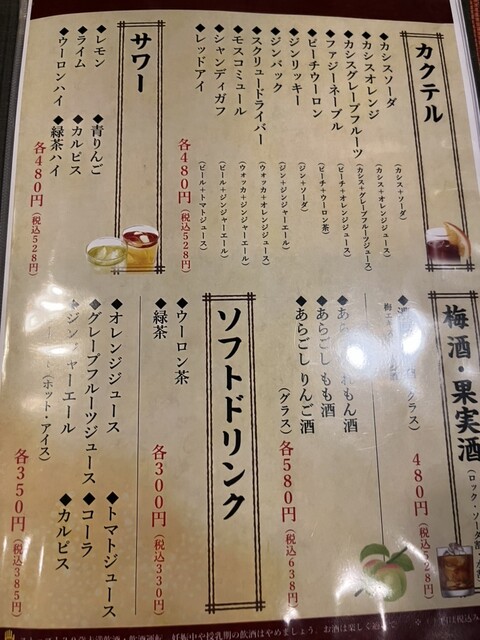 カクテル
◆カシスソーダ
(カシス+ソーダ)
◆カシスオレンジ
(カシス+オレンジジュース)
◆カシスグレープフルーツ
(カシス+グレープフルーツジュース)
◆ファジーネーブル
(ピーチ+オレンジジュース)
◆ピーチウーロン
(ピーチ+ウーロン茶)
◆ジンリッキー
(ジン+ソーダ)
◆ジンバック
(ジン+ジンジャーエール)
◆スクリュードライバー
(ウォッカ+オレンジジュース)
◆モスコミュール
(ウォッカ+ジンジャーエール)
◆シャンディガフ
(ビール+ジンジャーエール)
◆レッドアイ
(ビール+トマトジュース)
各480円(税込528円)
サワー
◆レモン
◆ライム
◆ウーロンハイ
◆青りんご
◆カルピス
◆緑茶ハイ
各480円(税込528円)
梅酒・果実酒
グラス)
480円(税込528円)
◆あら れもん酒
◆あらごしもも酒
◆あらごしりんご酒
(グラス)
各580円(税込638円)
ソフトドリンク
◆ウーロン茶
◆緑茶
各300円(税込330円)
◆オレンジジュース
◆グレープフルーツジュース
◆ジンジャーエール
(ホット・アイス)
◆トマトジュース
◆コーラ
◆カルピス
各350円(税込385円)
飲酒運転、妊娠中や授乳期の飲酒はやめましょう。お酒は楽しく